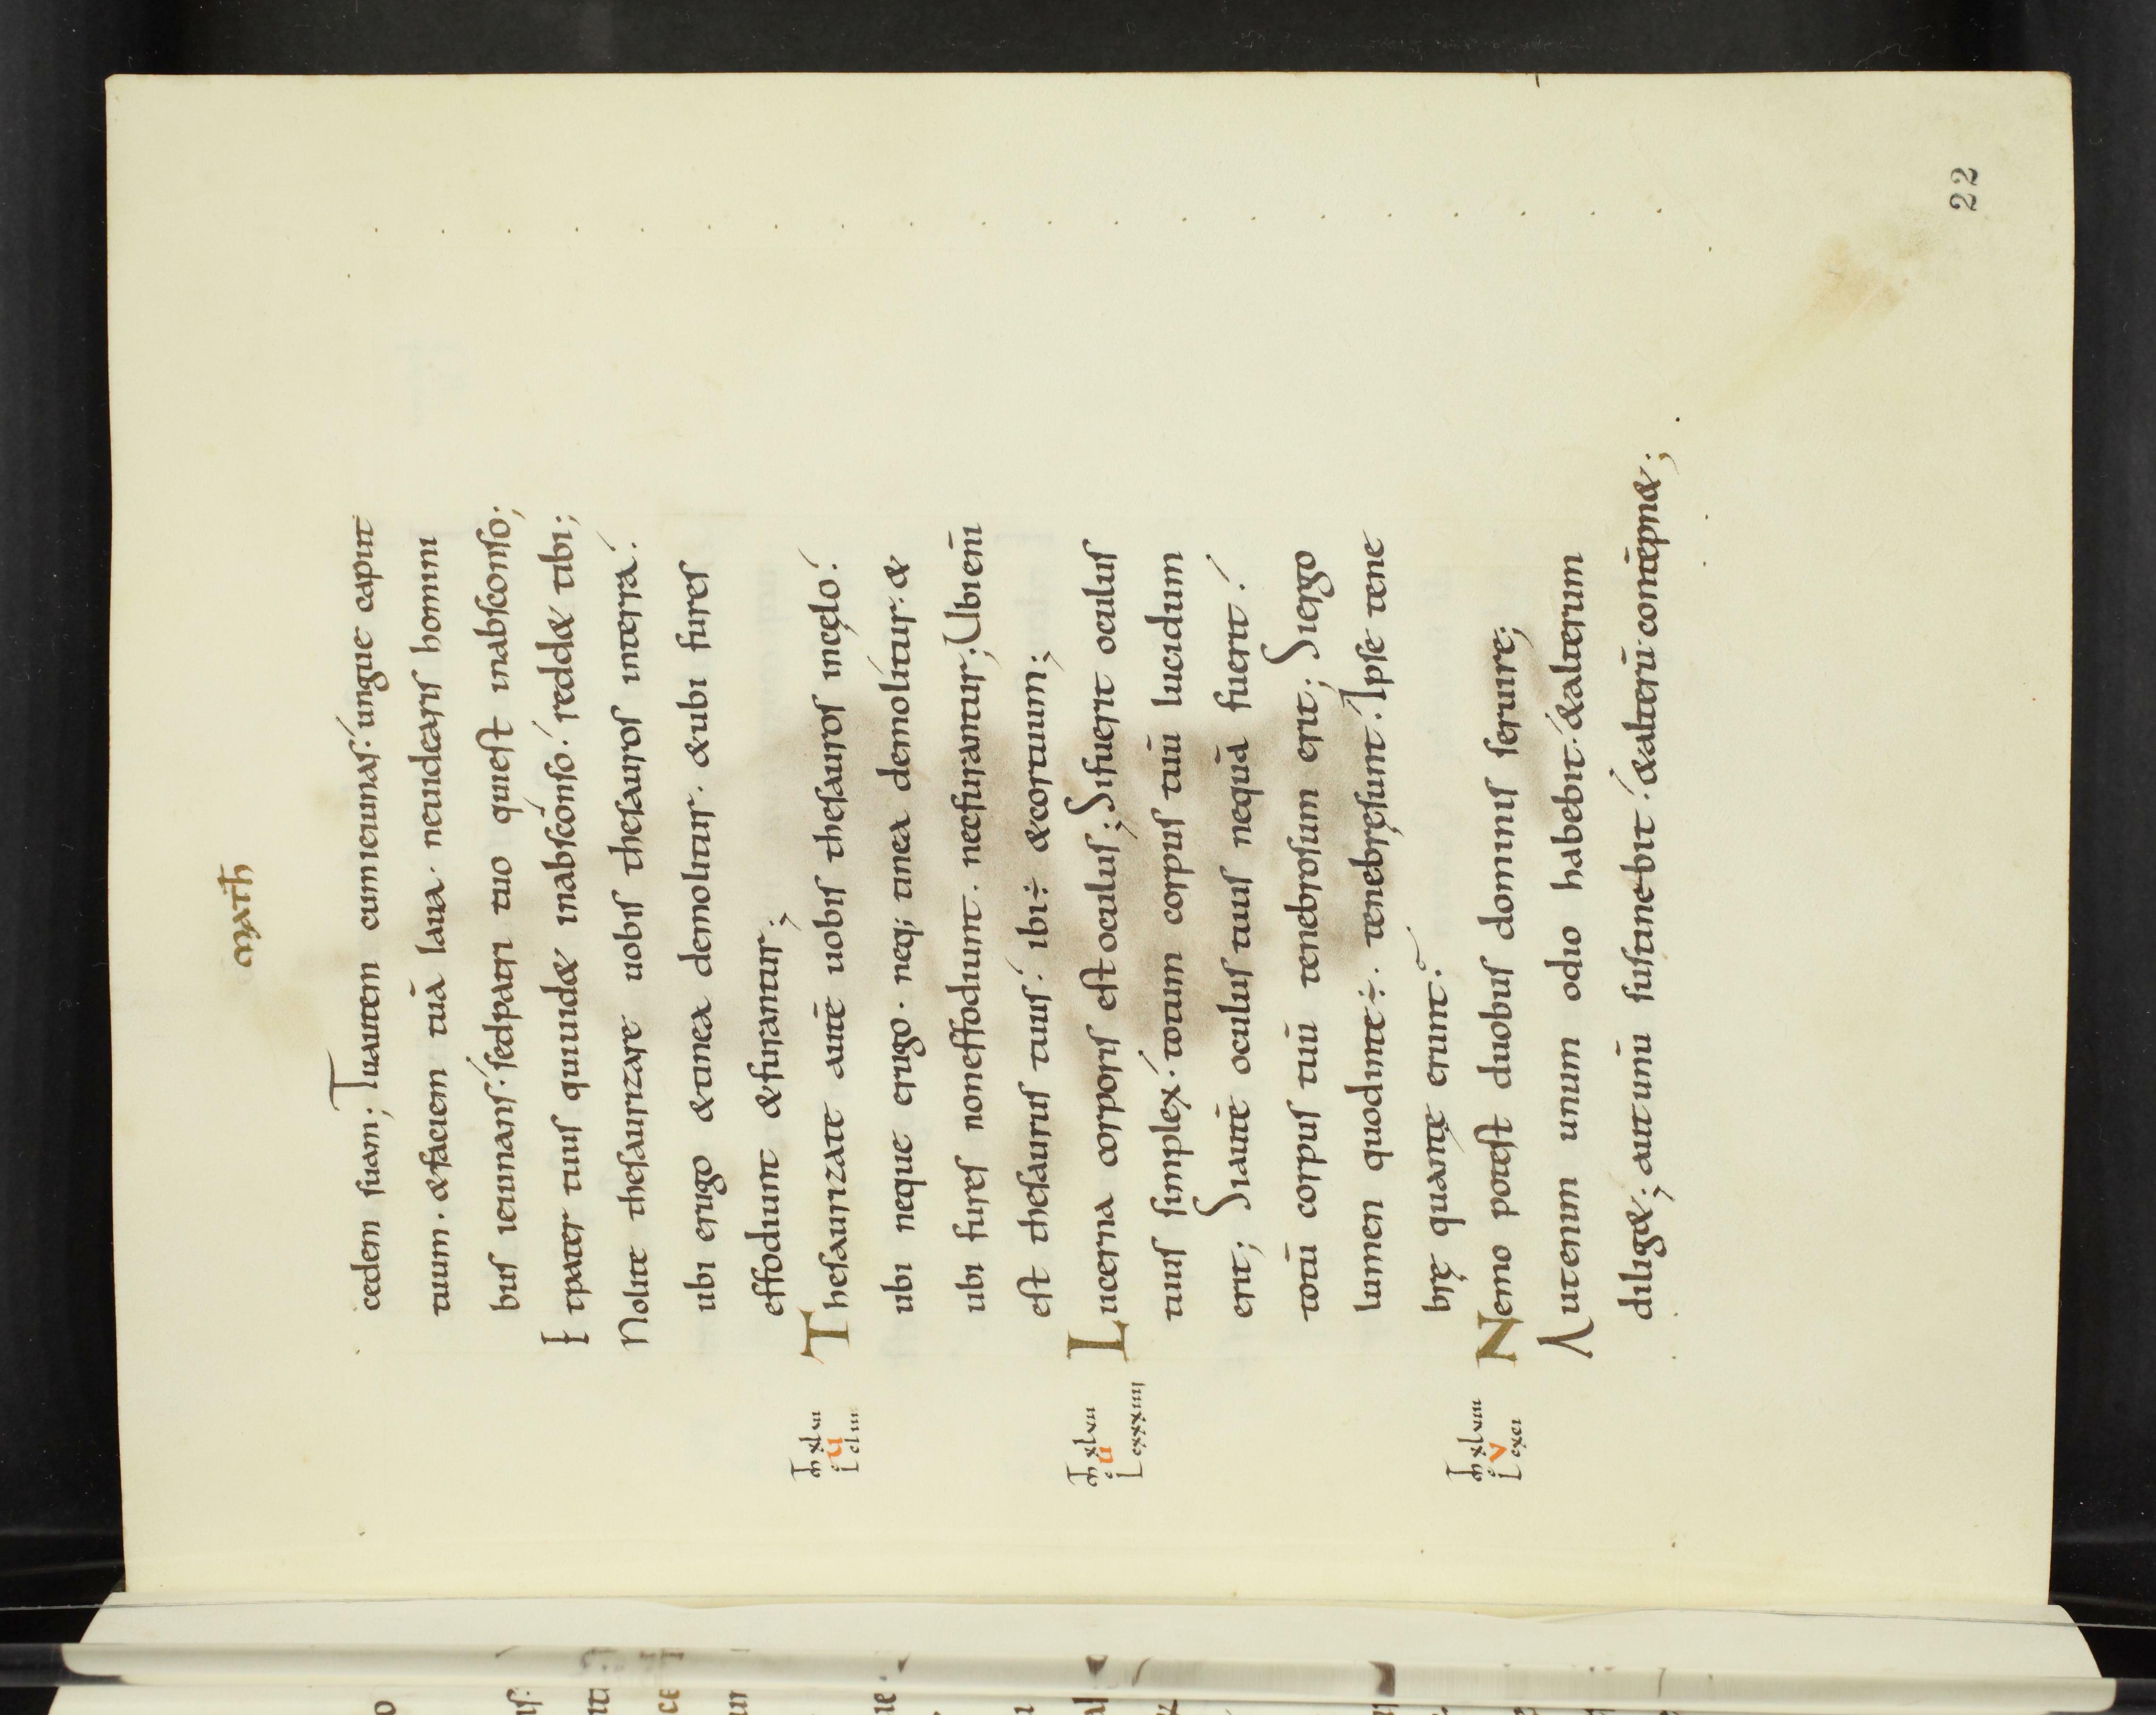 22
MATH
cedem suam; Tu autem cum ieiunas. ungue caput
tuum. & faciem tuā laua. ne uidearis homini
bus ieiunans. sed patri tuo qui est in absconso;
Et pater tuus qui uid& in abscōnso. redd& tibi;
Nolite thesaurizare uobis thesauros in terra.
ubi erugo & tinea demolitur. & ubi fures
effodiunt & furantur;
Thesaurizate autē uobis thesauros in cęlo.
ubi neque erugo. neq; tinea demolitur. &
ubi fures non effodiunt. nec furantur; Ubi eni̅
est thesaurus tuus. ibi ÷ & cor tuum;
Lucerna corporis est oculus; Si fuerit oculus
tuus simplex. totum corpus tuū lucidum
erit; Si autē oculus tuus nequā fuerit.
totū corpus tuū tenebrosum erit; Si ergo
lumen quod in te ÷. tenebrę sunt. Ipse tene
brę quantę erunt.
Nemo potest duobus dominis seruire;
Aut enim unum odio habebit. & alterum
dilig&; aut unū sustinebit. & alterū contēpn&;
m̄ xlvii
u
L cliii
m̄ xlvii
u
L cxxxiiii
m̄ xlviii
v
L cxci